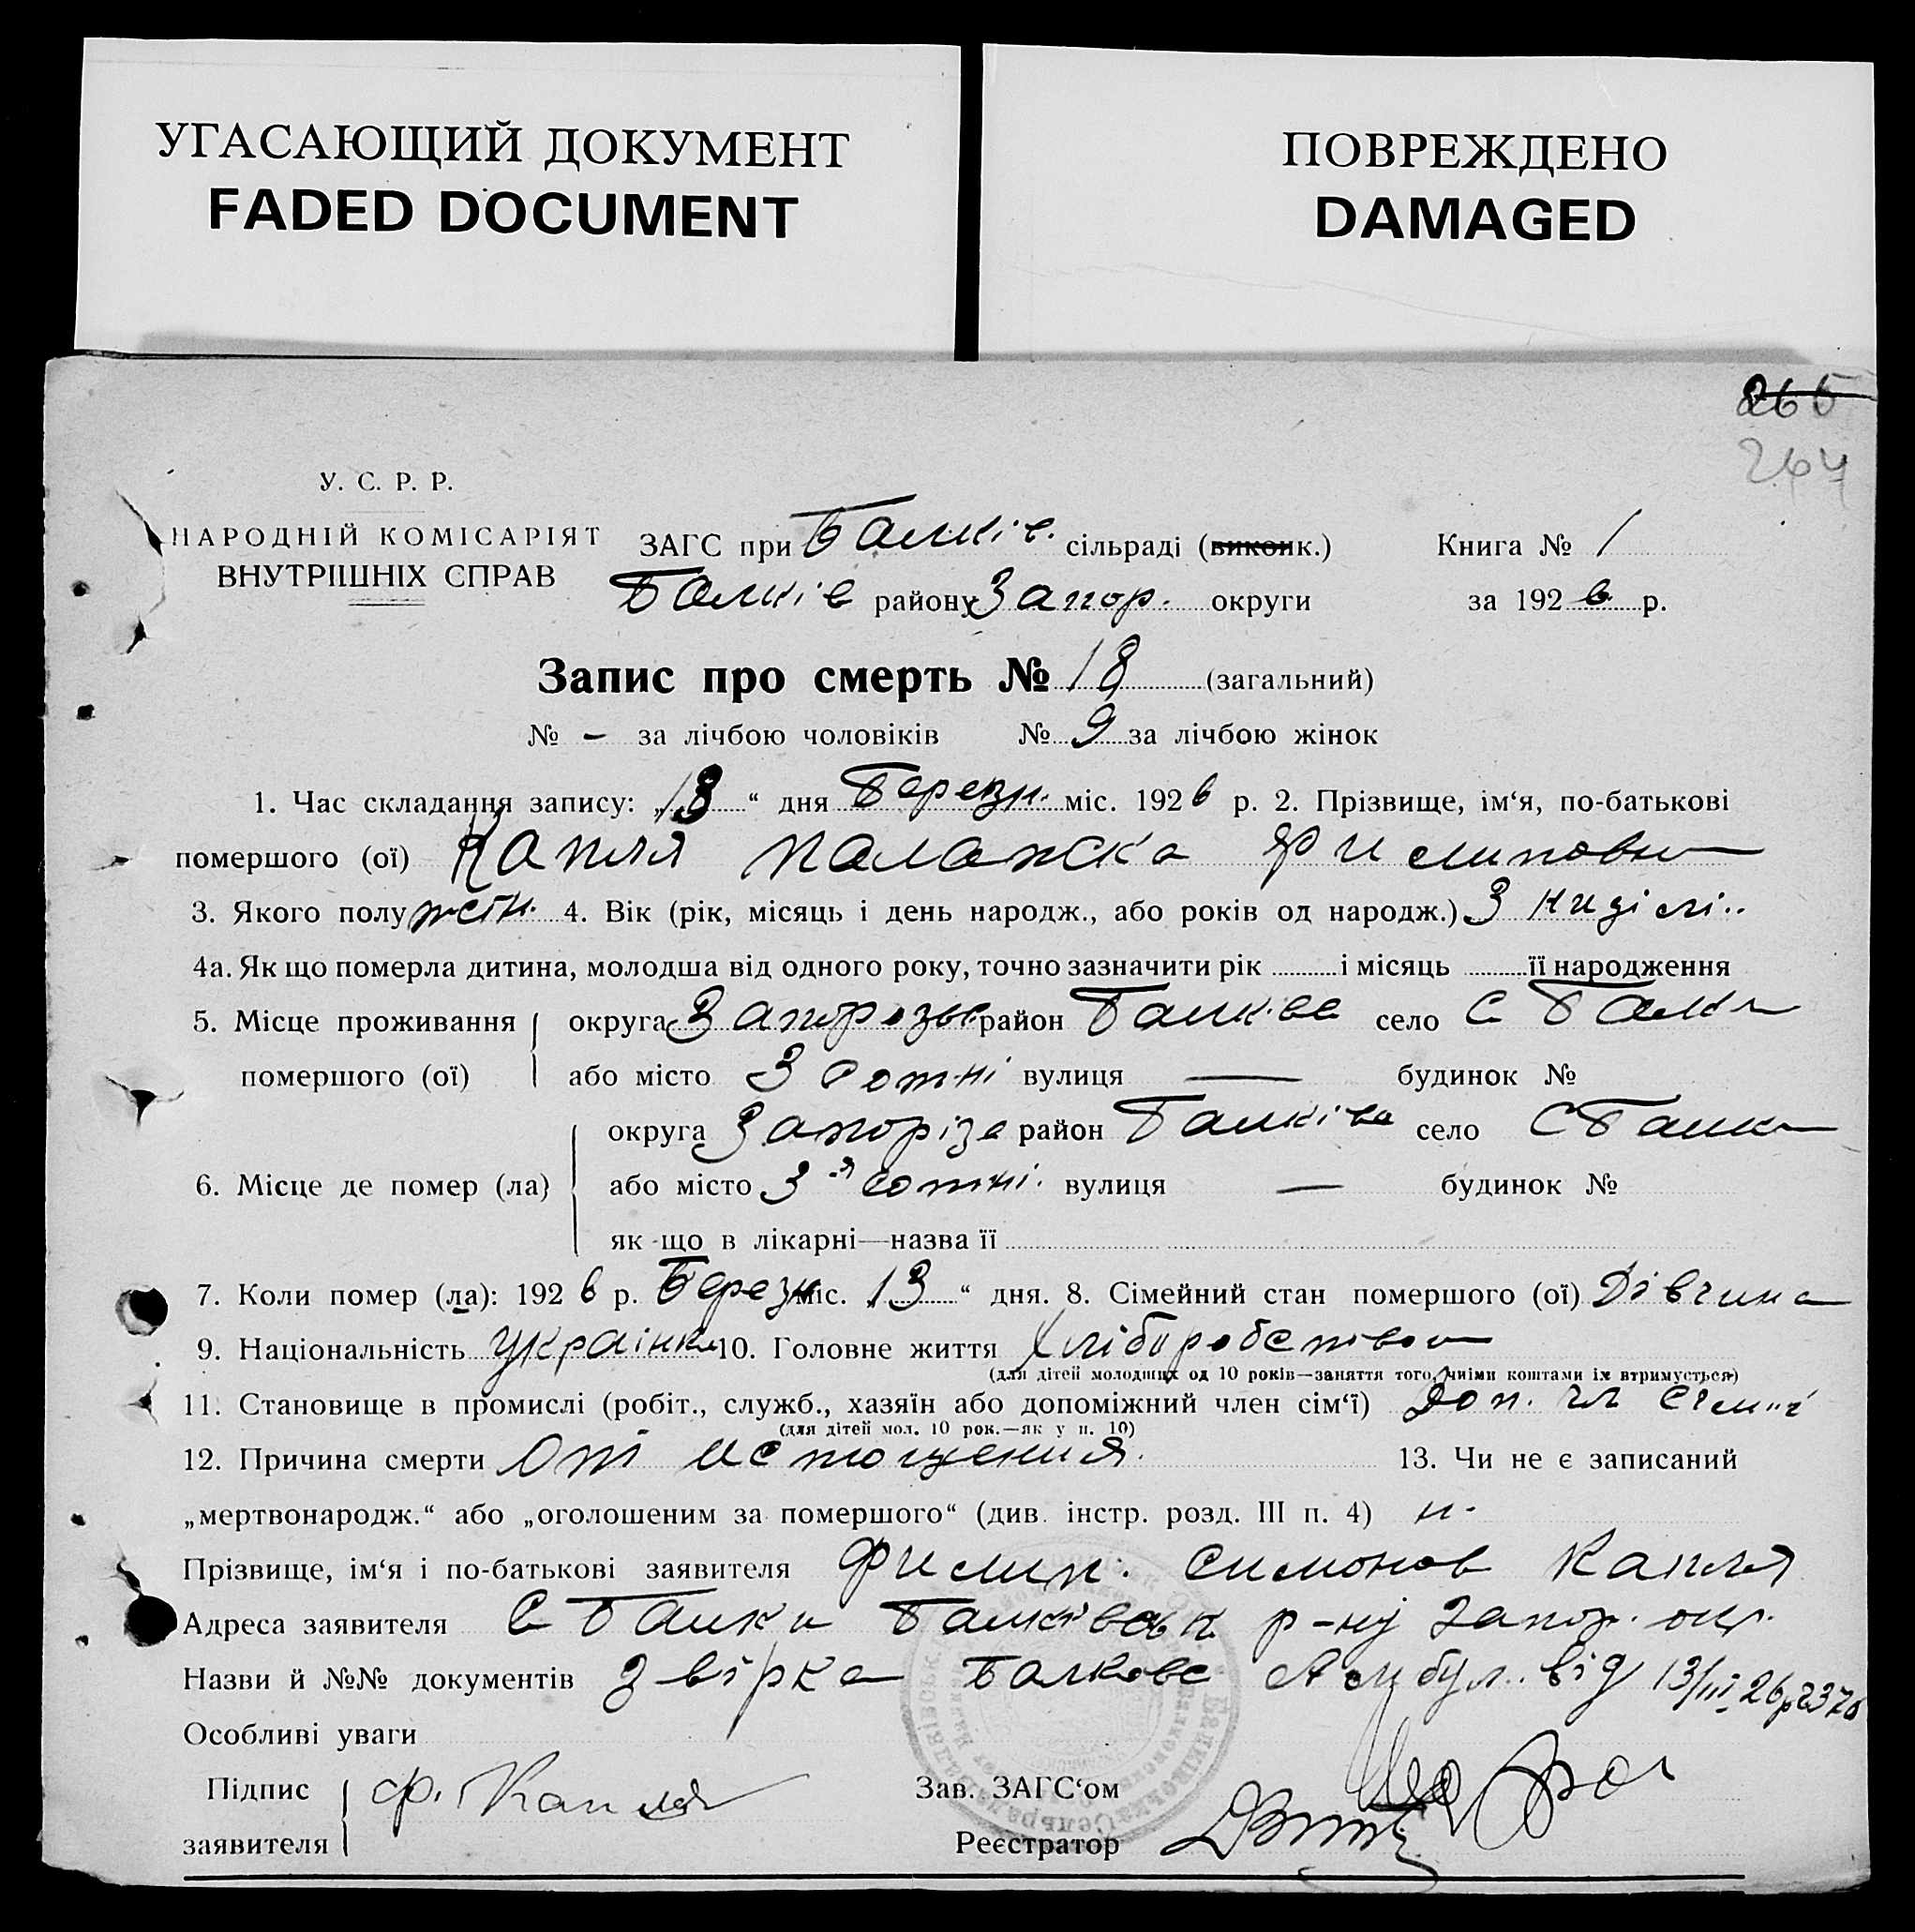 УГАСАЮЩИЙ ДОКУМЕНТ
FADED DOCUMENT
ПОВРЕЖДЕНО
DAMAGED
265
264
У. С. Р. Р.
НАРОДНІЙ КОМІСАРІЯТ
ВНУТРІШНІХ СПРАВ
ЗАГС при Балків. сільраді (виконк.) Книга № 1
Балків району Запор. округи за 1926 р.
Запис про смерть № 18 (загальний)
№ - за лічбою чоловіків № 9 за лічбою жінок
1. Час складання запису: „13“ дня Березн. міс. 1926 р. 2. Прізвище, ім‘я, по-батькові
помершого (ої) Капля Палажка Филиповн
3. Якого полу жін. 4. Вік (рік, місяць і день народж., або років од народж.) 3 ниділі..
4а. Як що померла дитина, молодша від одного року, точно зазначити рік і місяць її народження
5. Місце проживання округа район Балків село С Балки
помершого (ої) або місто 3 сотні вулиця — будинок №
округа Запоріз район Балків село С Балки
6. Місце де помер (ла) або місто 3-я сотні. вулиця — будинок №
як-що в лікарні—назва її
7. Коли помер (ла): 1926 р. Березн міс. 13“ дня. 8. Сімейний стан помершого (ої) Дівчина
9. Національність Украінка 10. Головне життя Хліборобство
(для дітей молодших од 10 років—заняття того, чиїми коштами їх втримується)
11. Становище в промислі (робіт., служб., хазяїн або допоміжний член сім‘ї) Доп. чл сімї
(для дітей мол. 10 рок.—як у п. 10)
12. Причина смерти От истощения. 13. Чи не є записаний
„мертвонародж.“ або „оголошеним за помершого“ (див. інстр. розд. III п. 4) н.
Прізвище, ім‘я і по-батькові заявителя Филип. Симонов Капля
Адреса заявителя С Балки Балківськ р-ну Запор. окр.
Назви й №№ документів Балков Амбул. від 13/III 26р
Особливі уваги
Підпис заявителя Ф. Капля
Зав. ЗАГС‘ом
Реєстратор